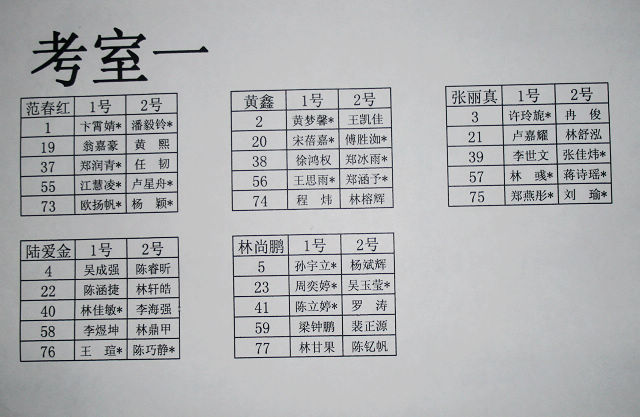 考室一
范春红 1号 2号
1 卞霄婧* 潘毅铃*
19 翁嘉豪 黄 熙
37 郑润青* 任 韧
55 江慧凌* 卢星舟*
73 欧扬帆* 杨 颖*
黄鑫 1号 2号
2 黄梦馨* 王凯佳
20 宋蓓嘉* 傅胜洳*
38 徐鸿权 郑冰雨*
56 王思雨* 郑涵予*
74 程 炜 林榕辉
张丽真 1号 2号
3 许玲旎* 冉 俊
21 卢嘉耀 林舒泓
39 李世文 张佳炜*
57 林 彧* 蒋诗瑶*
75 郑燕彤* 刘 瑜*
陆爱金 1号 2号
4 吴成强 陈睿昕
22 陈涵捷 林轩皓
40 林佳敏* 李海强
58 李煜坤 林鼎甲
76 王 瑄* 陈巧静*
林尚鹏 1号 2号
5 孙宇立* 杨斌辉
23 周奕婷* 吴玉莹*
41 陈立婷* 罗 涛
59 梁钟鹏 裴正源
77 林甘果 陈钇帆